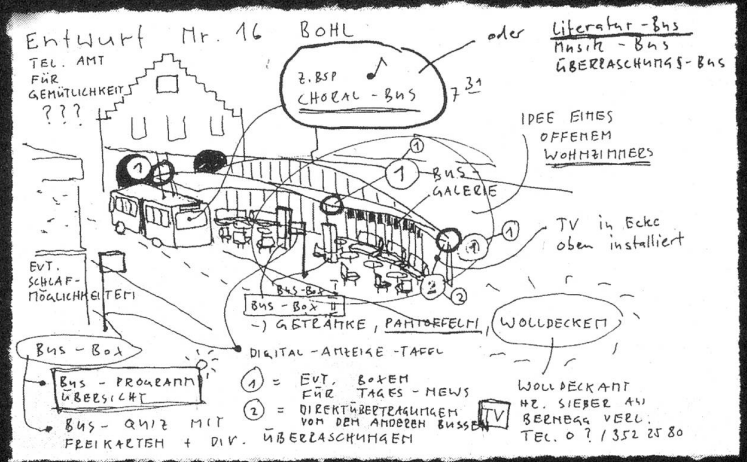 Entwurf Nr. 16 BOHL
TEL. AMT
FÜR
GEMÜTLICHKEIT
???
Z.BSP
CHORAL-BUS
oder
Literatur-Bus
Musik-Bus
ÜBERRASCHUNGS-BUS
7 31
IDEE EINES
OFFENEN
WOHNZIMMERS
1
1
1
BUS-
GALERIE
1
1
TV in Ecke
oben installiert
2
2
EVT.
SCHLAF-
MÖGLICHKEITEN
BUS-BOX
BUS-BOX
-) GETRÄNKE, PANTOFFELN, WOLLDECKEN
BUS-BOX
DIGITAL-ANZEIGE-TAFEL
BUS-PROGRAMM
ÜBERSICHT
BUS-QUIZ MIT
FREIKARTEN + DIV. ÜBERRASCHUNGEN
1 = EVT. BOXEN
FÜR TAGES-NEWS
2 = DIREKTÜBERTRAGUNGEN
VON DEN ANDEREN BUSSEN
TV
WOLLDECKAMT
HR. SIEBER AUS
BERNEGG VERL.
TEL. 0 ? / 352 25 80